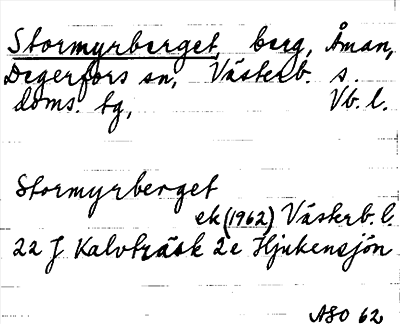 Stormyrberget, berg, Åman,
Degerfors sn, Västerb. s.
doms. tg, Vb. l.
Stormyrberget
ek (1962) Västerb. l.
22 J Kalvträsk 2e Hjukensjön
ASO 62